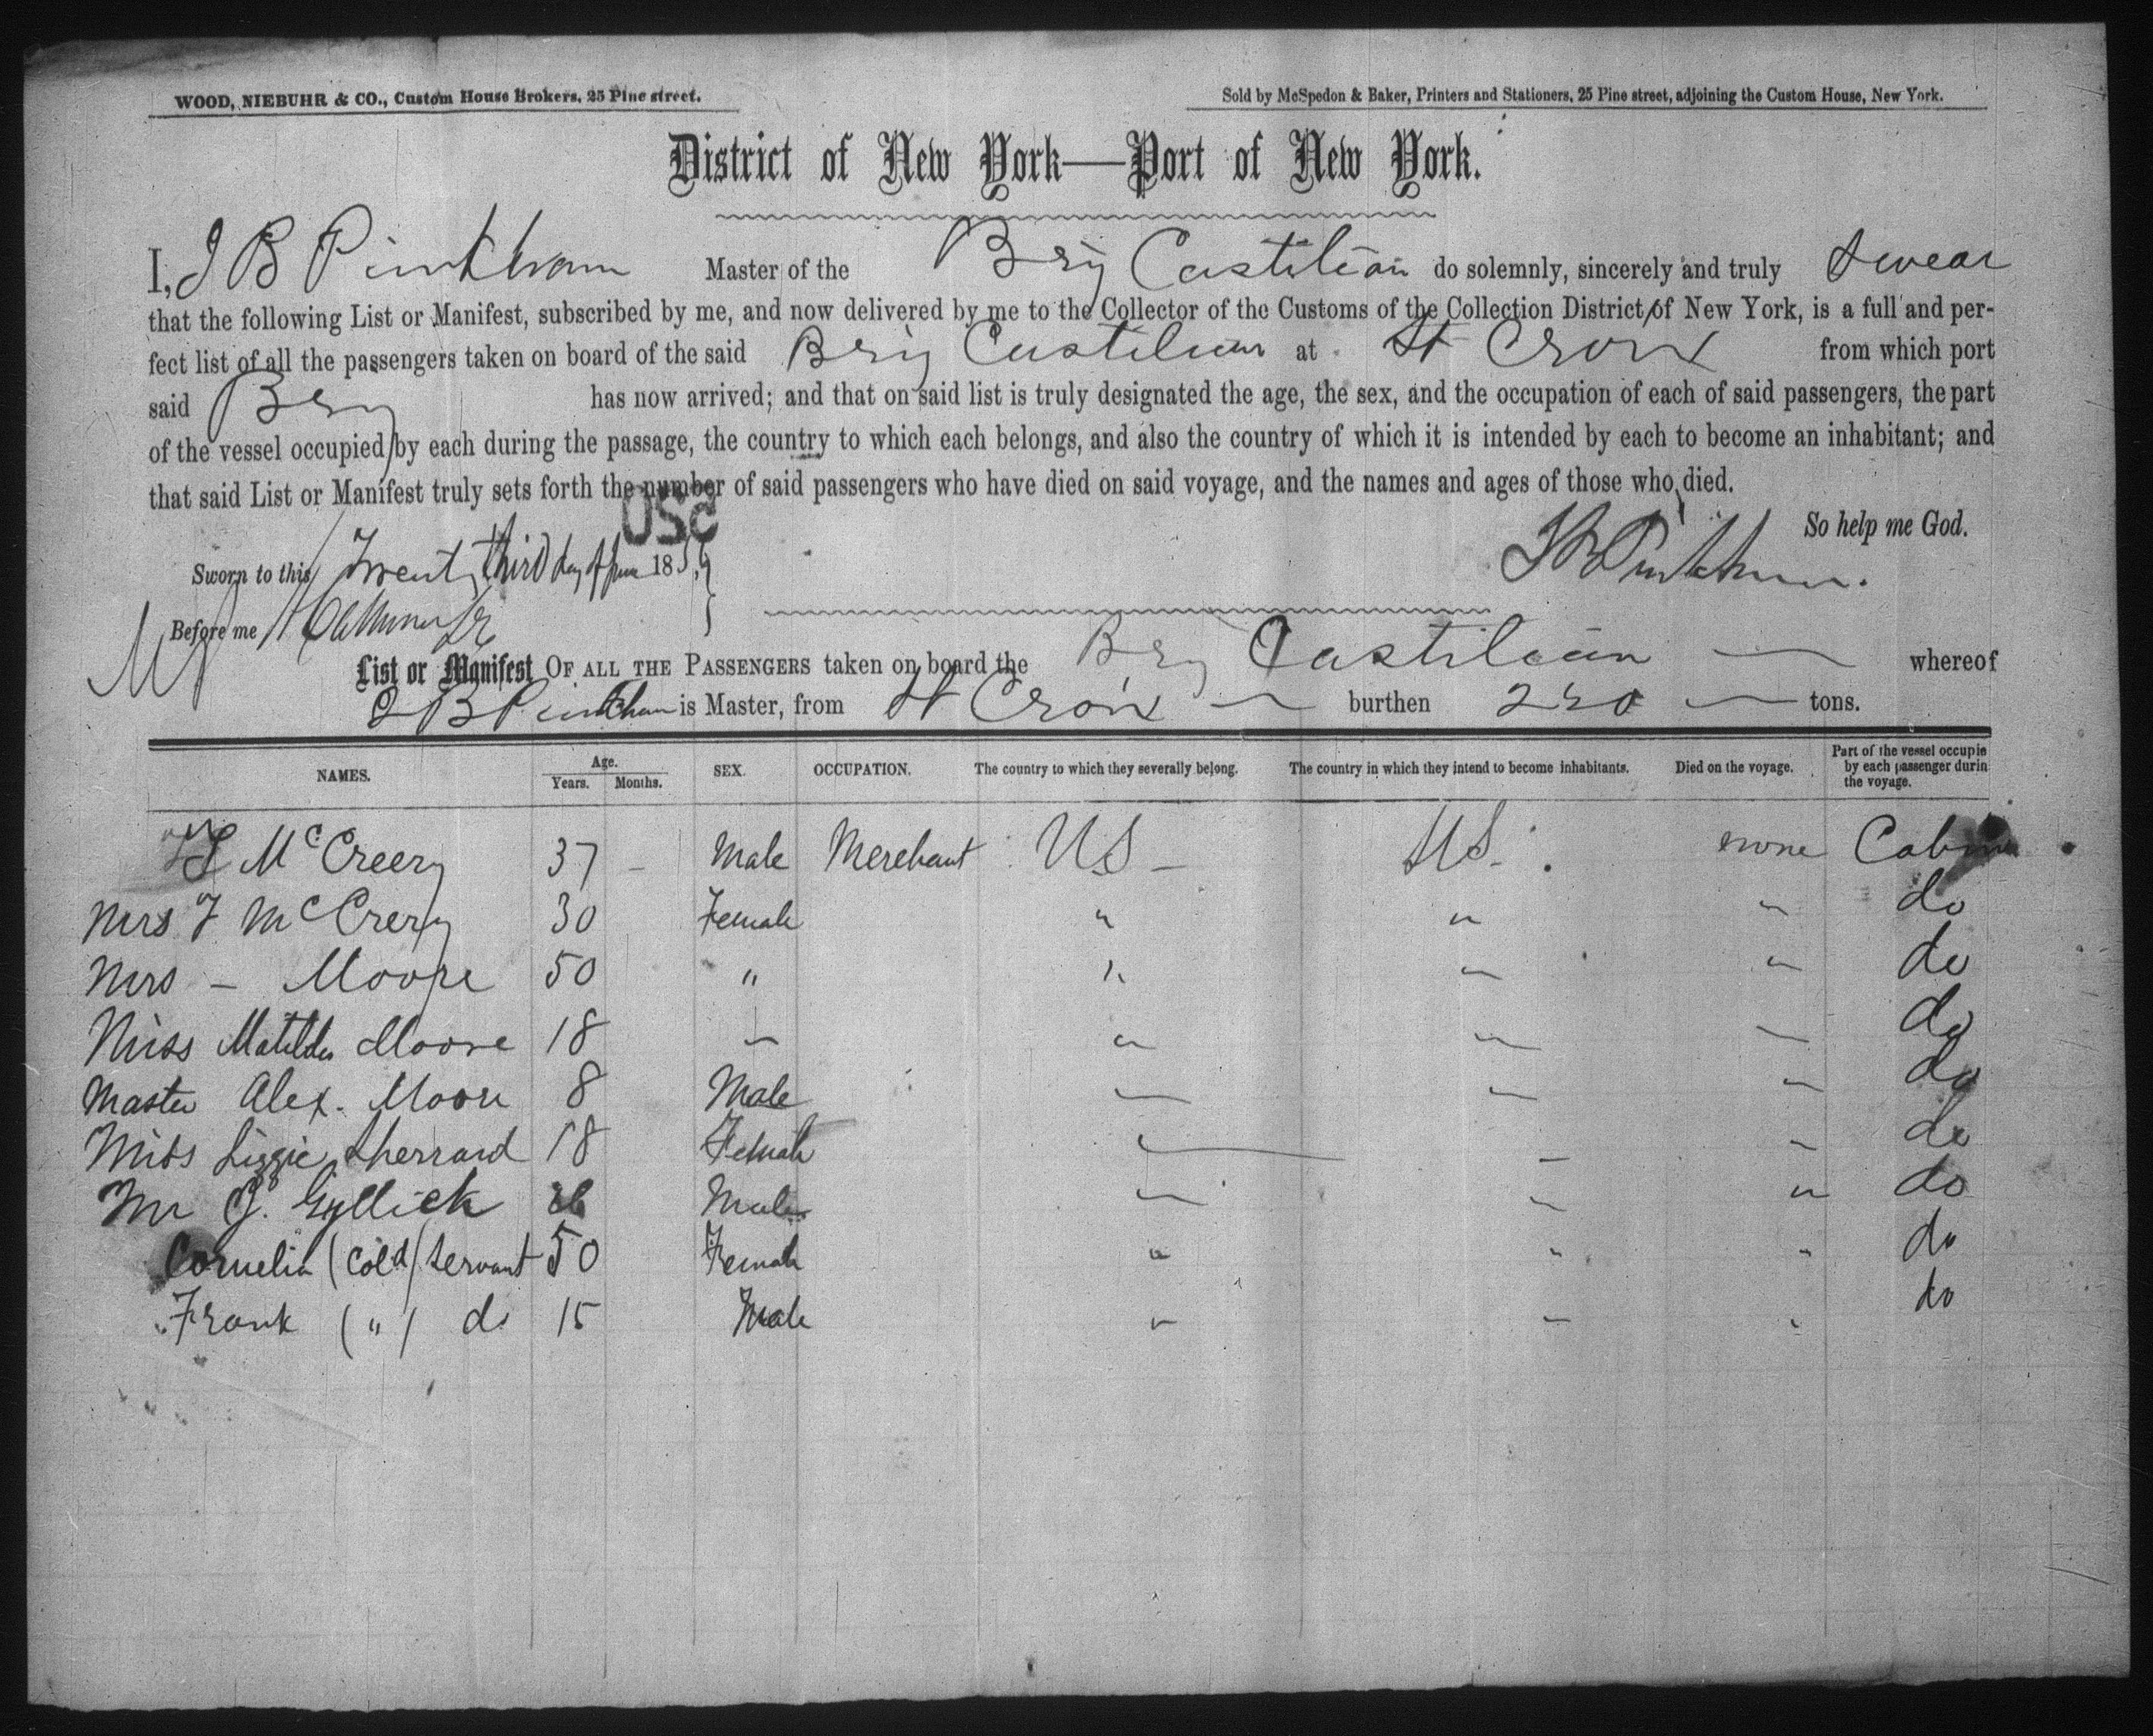 WOOD, NIEBUHR & CO., Custom House Brokers, 25 Pine street.
Sold by McSpedon & Baker, Printers and Stationers, 25 Pine street, adjoining the Custom House, New York.
District of New York—Port of New York.
I, J B Pinkham Master of the Brig Castilian do solemnly, sincerely and truly swear
that the following List or Manifest, subscribed by me, and now delivered by me to the Collector of the Customs of the Collection District of New York, is a full and per-
fect list of all the passengers taken on board of the said Brig Castilian at St Croix from which port
said Brig has now arrived; and that on said list is truly designated the age, the sex, and the occupation of each of said passengers, the part
of the vessel occupied by each during the passage, the country to which each belongs, and also the country of which it is intended by each to become an inhabitant; and
that said List or Manifest truly sets forth the number of said passengers who have died on said voyage, and the names and ages of those who died.
USC
So help me God.
Sworn to this Twenty third day of June 1859
J B Pinkham.
Before me
List or Manifest OF ALL THE PASSENGERS taken on board the Brig Castilian — whereof
J B Pinkham is Master, from St Croix — burthen 250 — tons.
NAMES. Age. Years. Months. SEX. OCCUPATION. The country to which they severally belong. The country in which they intend to become inhabitants. Died on the voyage. Part of the vessel occupie by each passenger durin the voyage.
McCreery 37 - Male Merchant US - US. none Cabin
Mrs F McCrery 30 Female " " " do
Mrs - Moore 50 " " " " do
Miss Matilda Moore 18 " " " " do
Master Alex. Moore 8 Male " " " do
Miss Lizzie Sherrard 18 Female " " " do
Mr G. Gyllick Male " " " do
Cornelia (Cold) Servant 50 Female " " " do
Frank (") do 15 Male " " " do